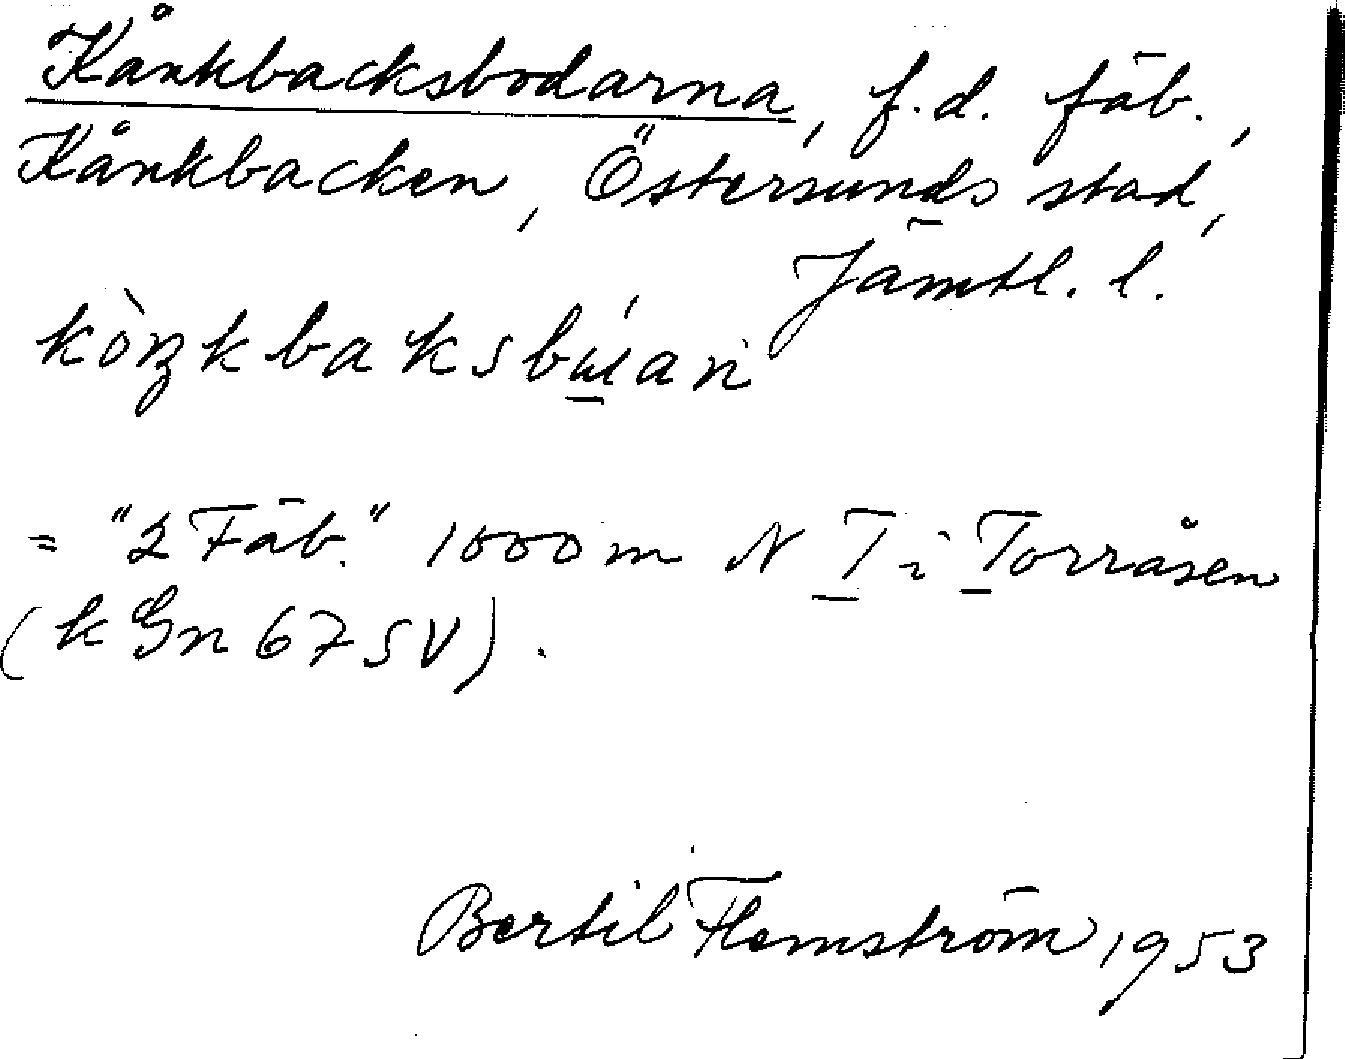 Kånkbacksbodarna, f.d. fäb.,
Kånkbacken, Östersunds stad,
Jämtl. l.
= "2 Fäb." 1000 m N T i Torråsen
(k Gn 67 SV).
Bertil Flemström 1953